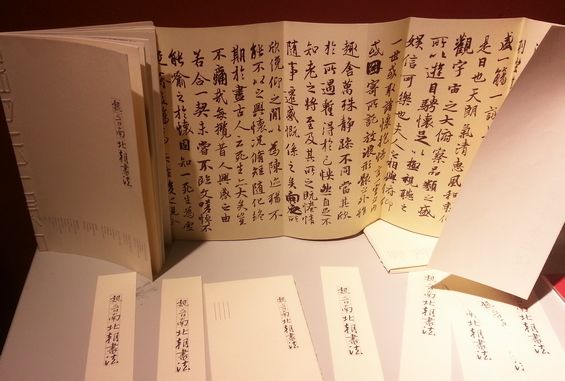 盛一觴一詠
是日也天朗氣清惠風和暢
觀宇宙之大俯察品類之盛
所以遊目騁懷足以極視聽之
娛信可樂也夫人之相與俯仰
一世或取諸懷抱悟言一室之內
或因寄所託放浪形骸之外雖
趣舍萬殊靜躁不同當其欣
於所遇暫得於己怏然自足不
知老之將至及其所之既惓情
隨事遷感慨係之矣向之所
欣俛仰之閒以為陳迹猶不
能不以之興懷況脩短隨化終
期於盡古人云死生亦大矣豈
不痛哉每攬昔人興感之由
若合一契未嘗不臨文嗟悼不
能喻之於懷固知一死生為虛
魏晉南北朝書法
魏晉南北朝書法
魏晉南北朝書法
魏晉南北朝書法
魏晉南北朝書法
南北朝書法